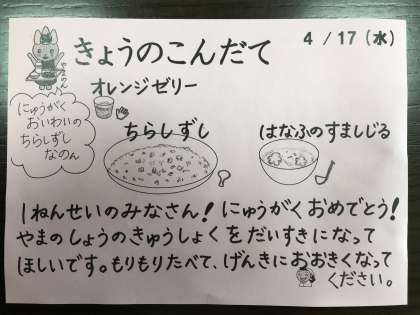 きょうのこんだて
4/17(水)
オレンジゼリー
にゅうがく
おいわいの
ちらしずし
なのん
ちらしずし
はなふのすましじる
1ねんせいのみなさん!にゅうがくおめでとう!
やまのしょうのきゅうしょくをだいすきになって
ほしいです。もりもりたべて、げんきにおおきくなって
ください。